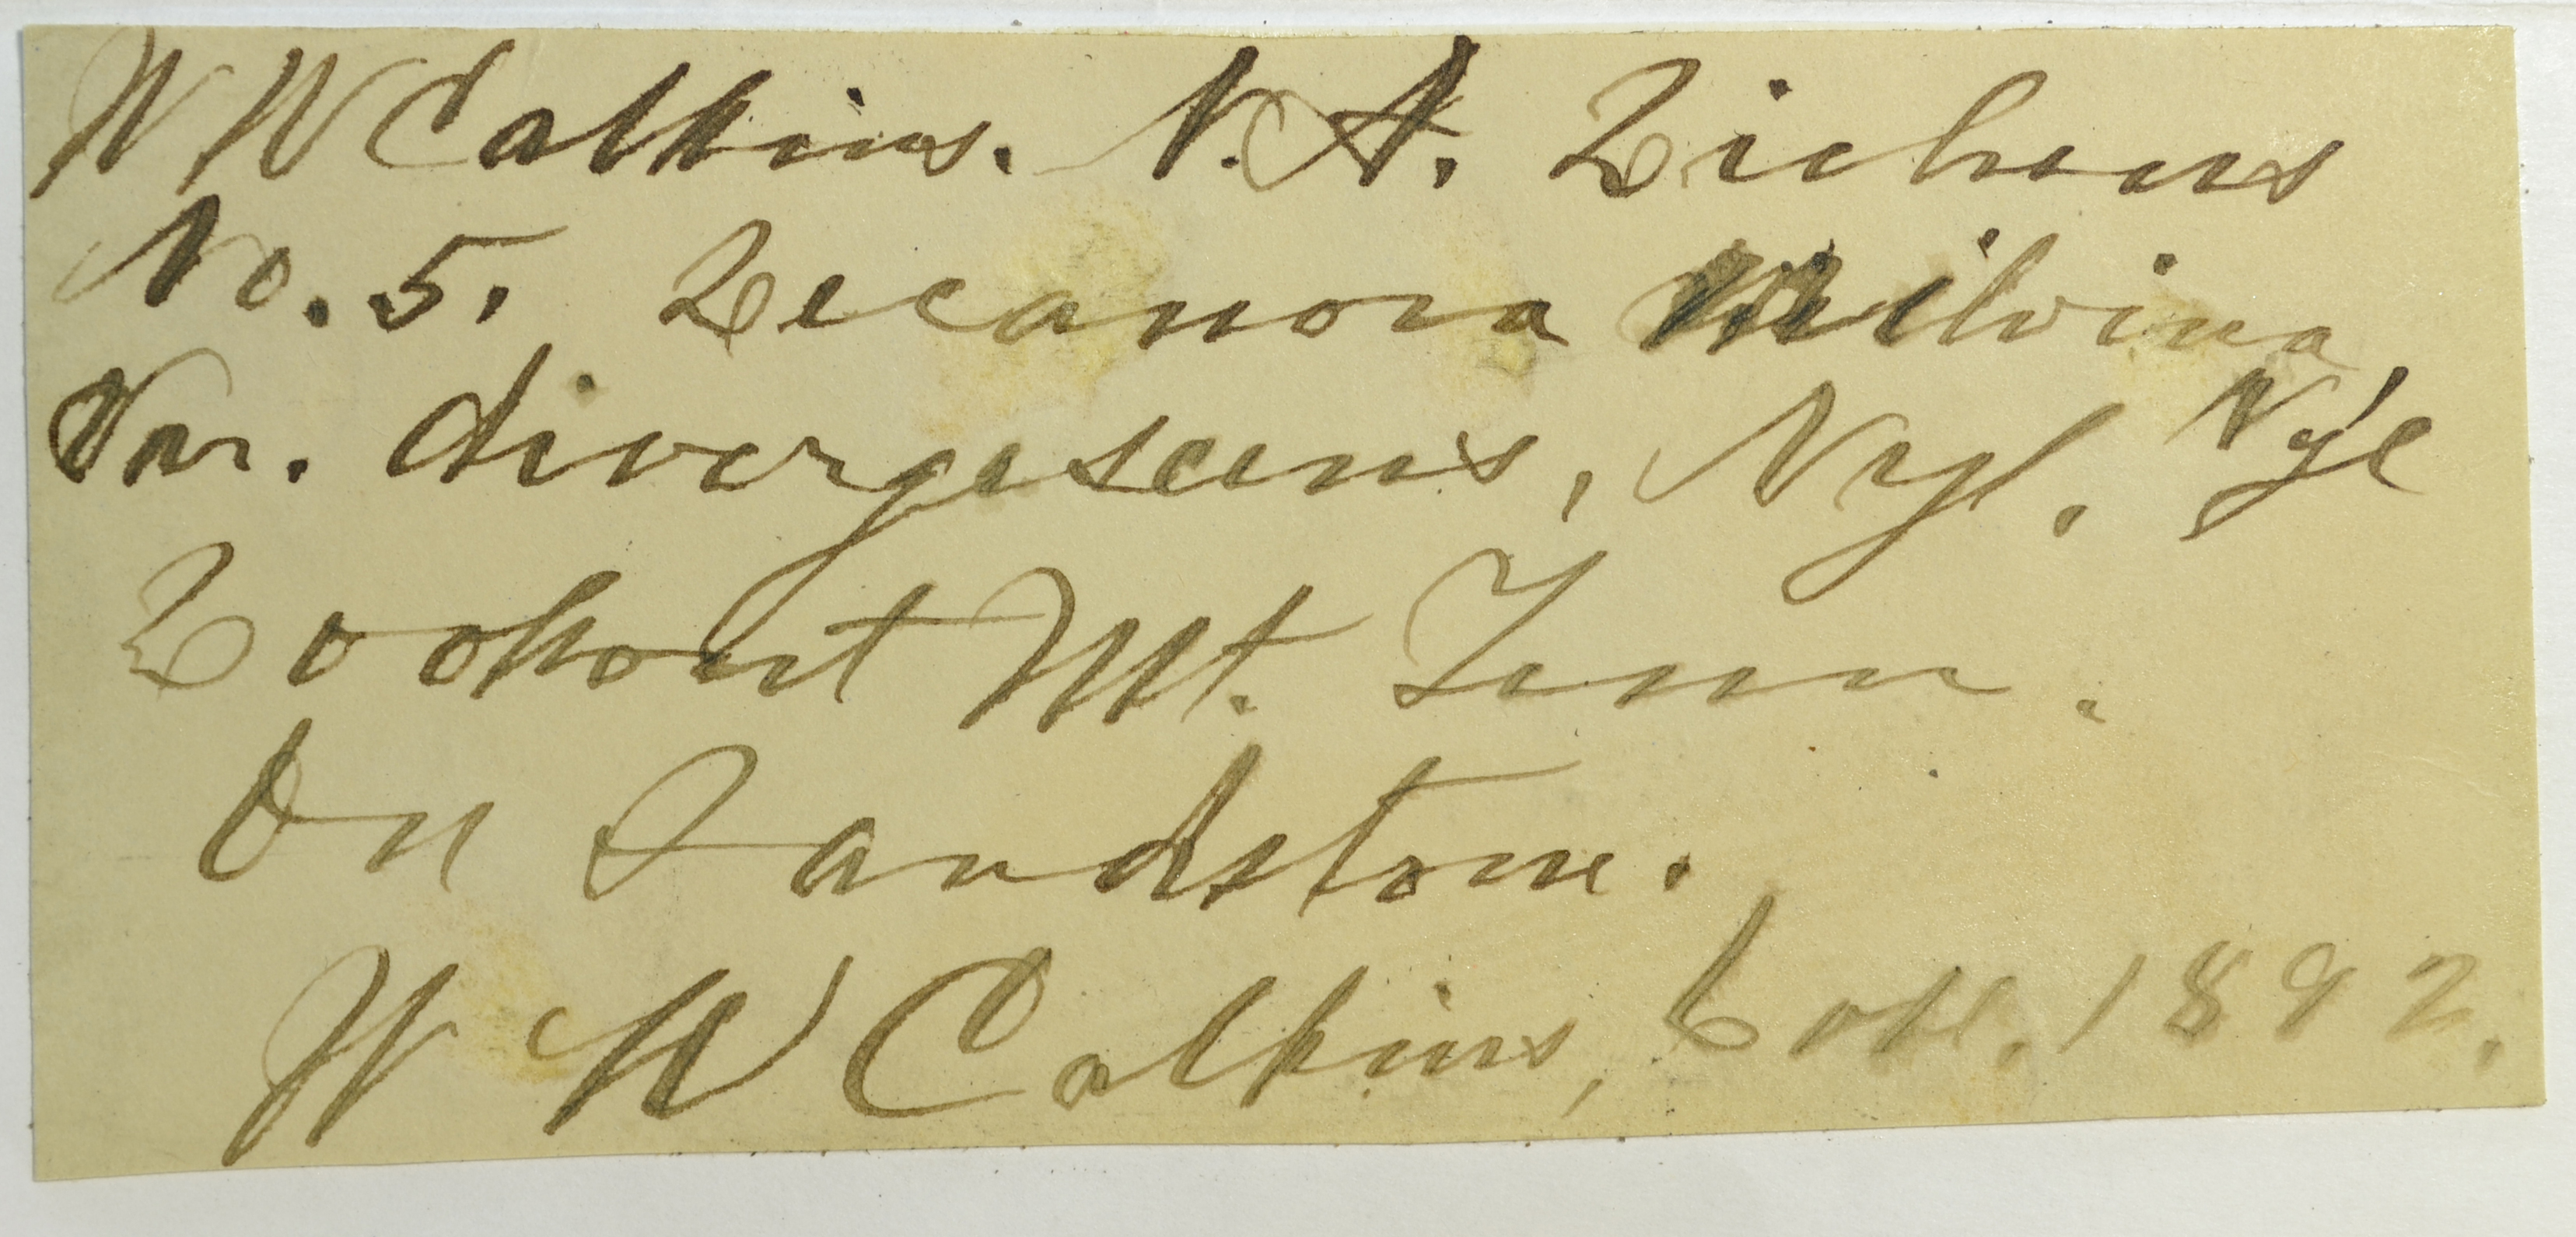 W W Calkins. N. A. Lichens
No. 5. Lecanora milvina
Var. divergescens, Nyl. Nyl
Lookout Mt. Tenn.
On Sandstone.
W W Calkins, Coll. 1892.